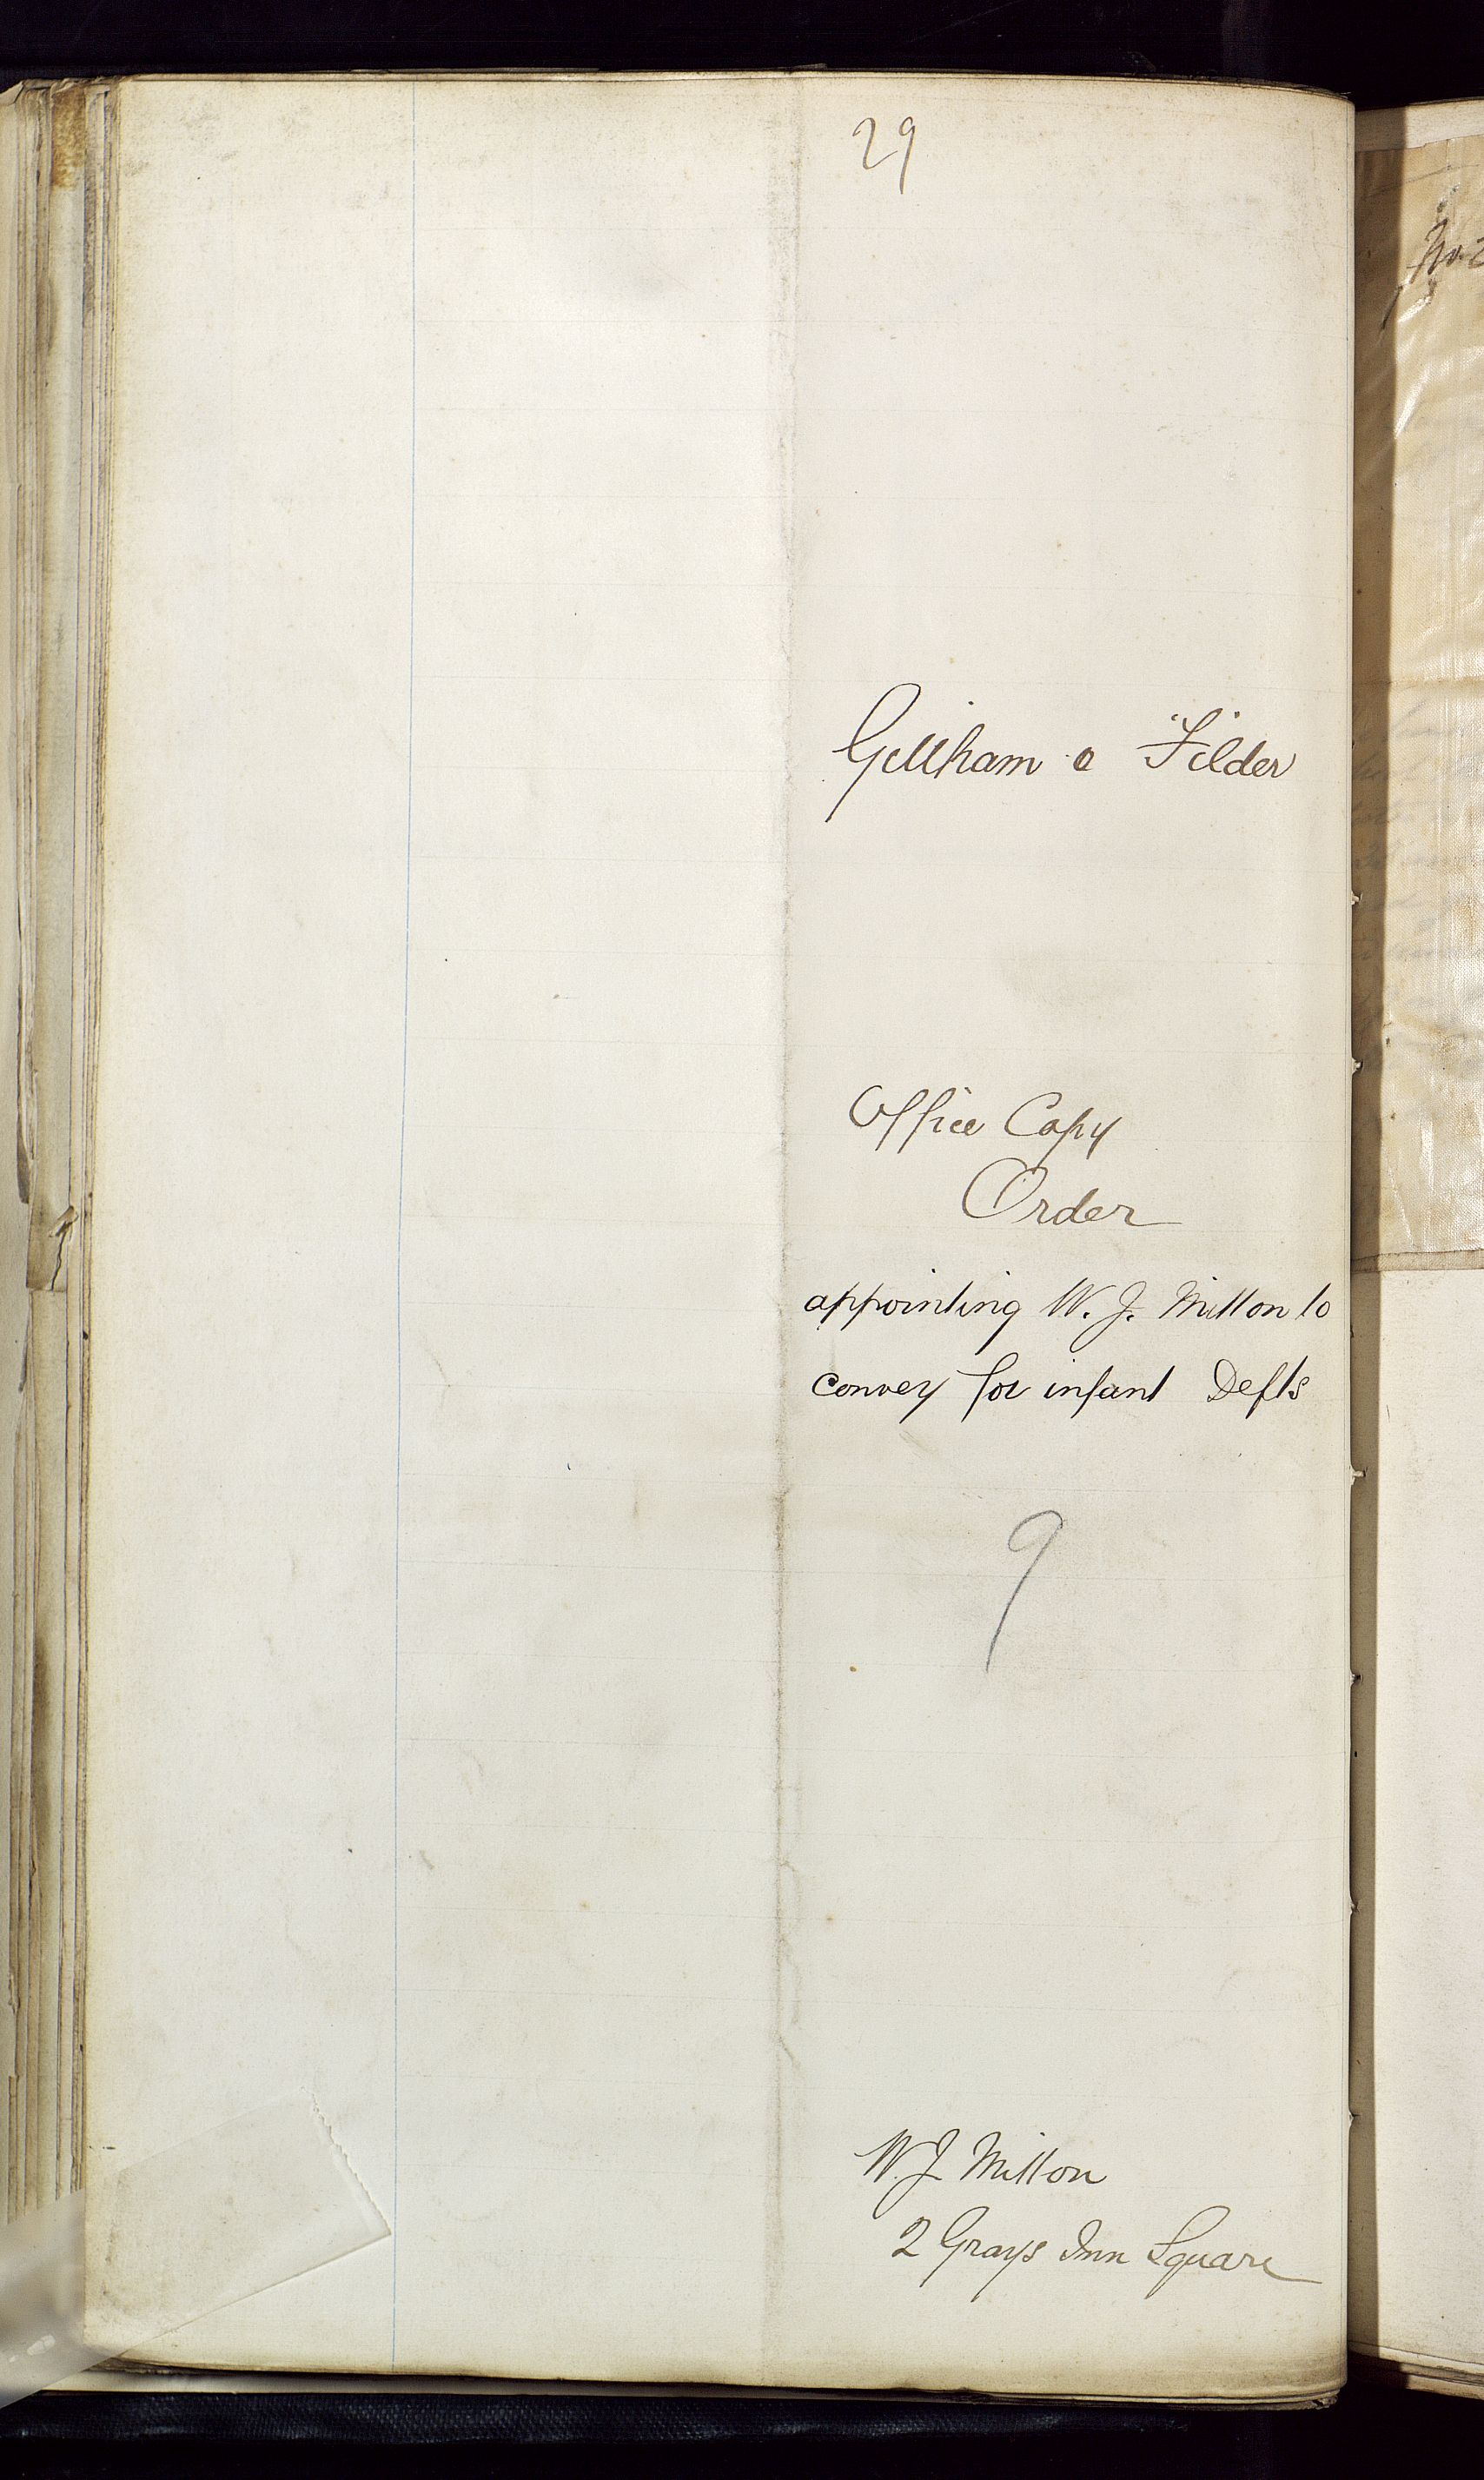 29
Gillham v Filder
Office Copy
Order
appointing W. J. Mitton to
convey for infant Defts
9
W. J. Mitton
2 Grays Inn Square
No.